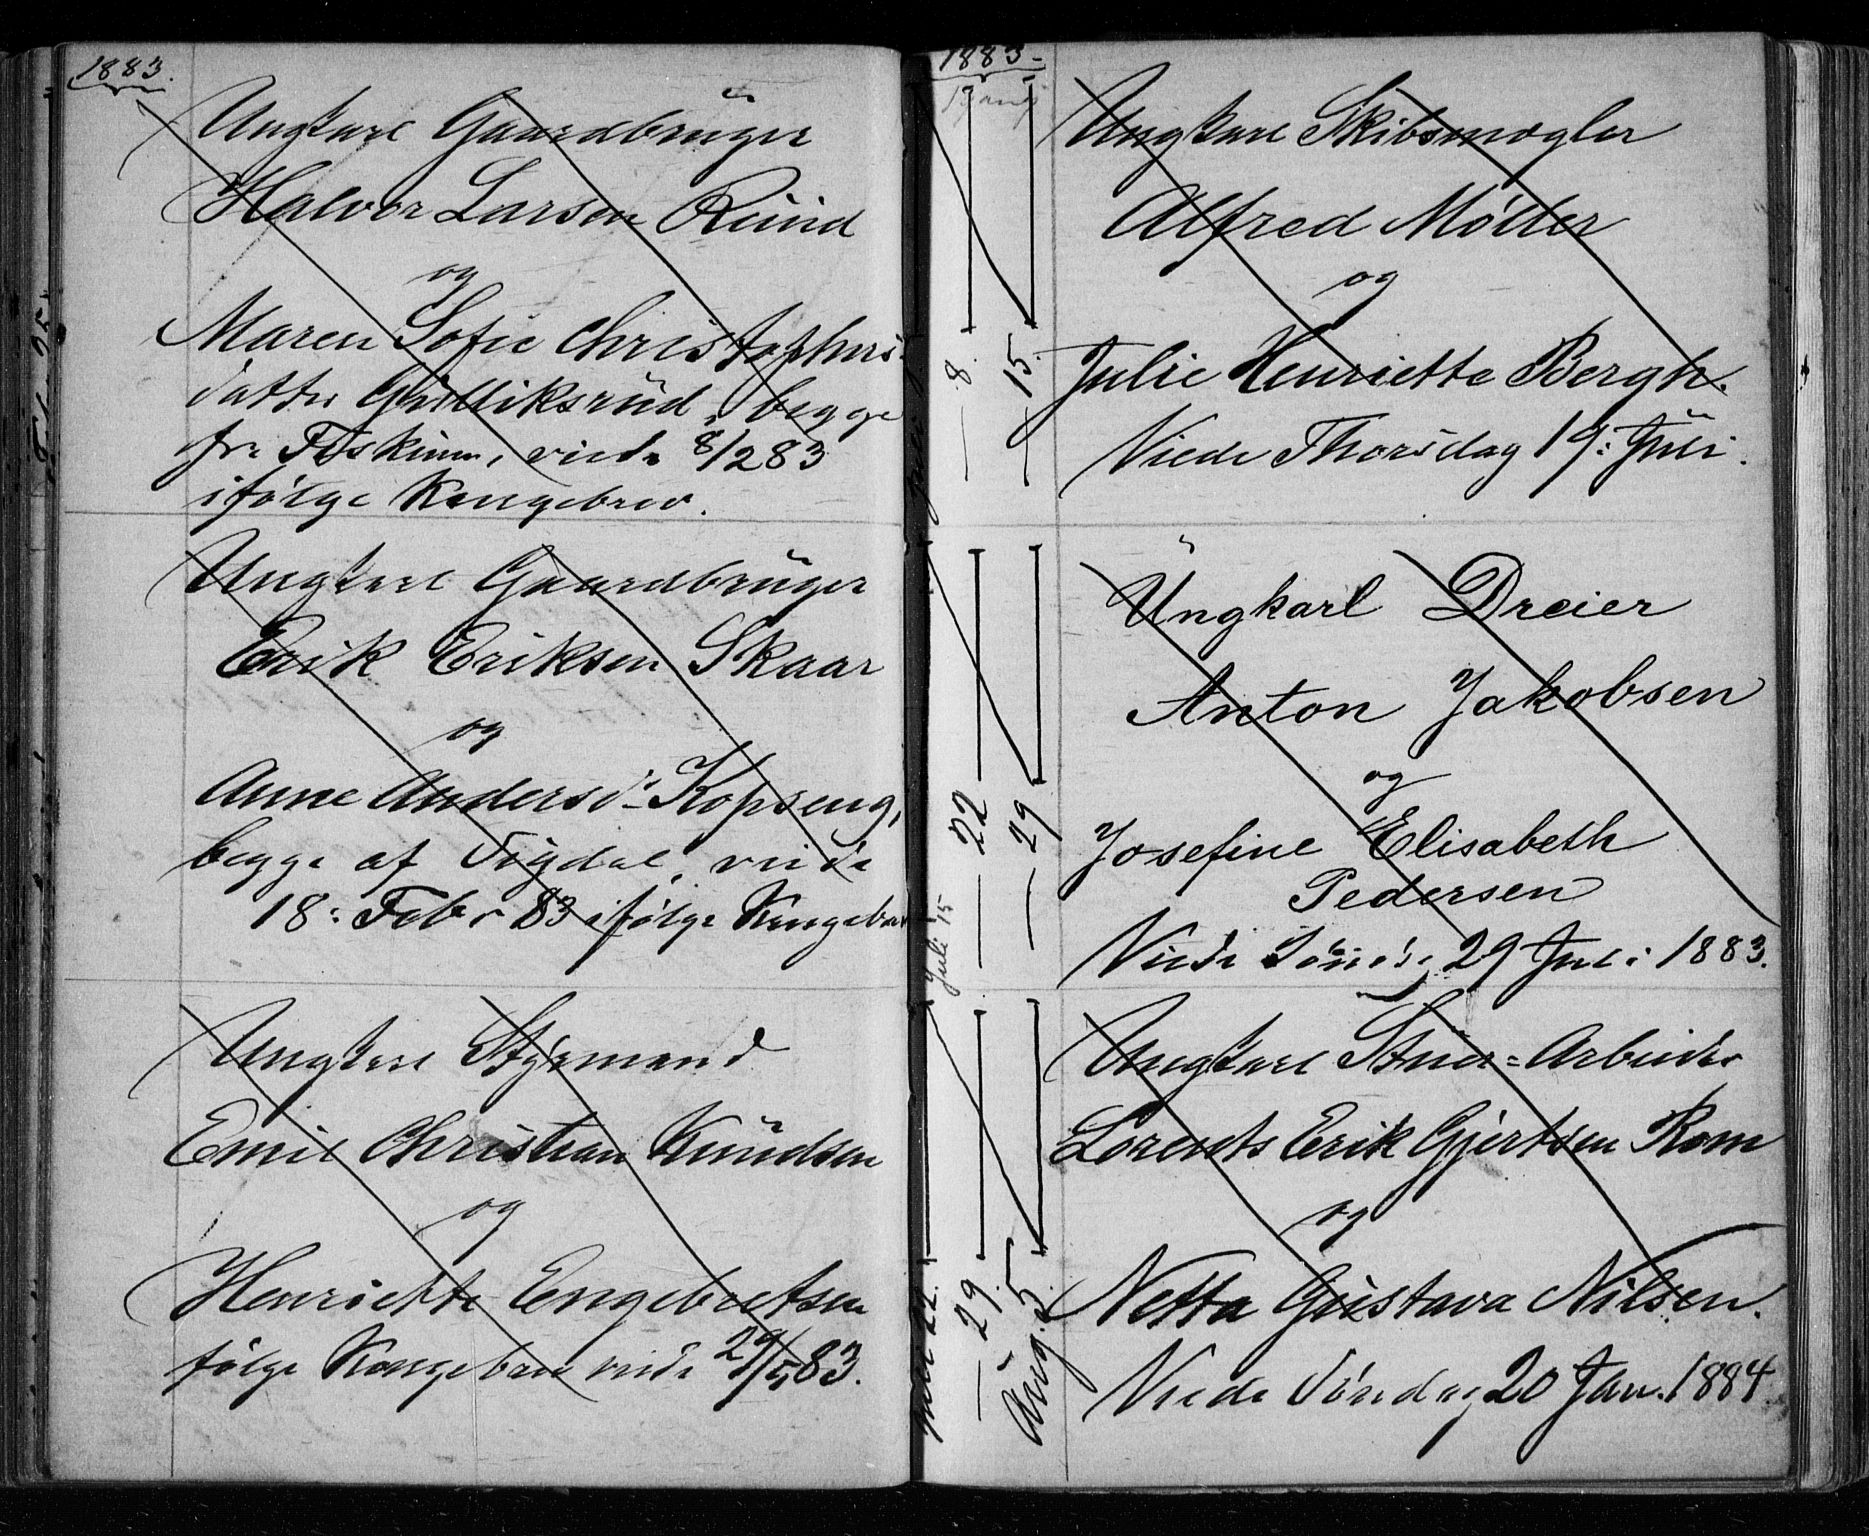 1883.
Ungkarl Gaardbruger
Halvor Larsen Ruud
og
Maren Sofie Christophers
datter Gulliksrud, begge
fr. Fiskum, viede 8/2 83
ifølge Kongebrev.
Ungkarl Gaardbruger
Erik Eriksen Skaar
og
Anne Andersd. Kopseng,
begge af Sigdal, viede
18: Febr 83 ifølge Kongebrev
Ungkarl Styrmand
Emil Christian Knudsen
og
Henriette Engebretsen
følge Kongebrev viede 29/5 83.
1883.
8. 15.
Ungkarl Skibsmægler
Alfred Møller
og
Julie Henriette Bergh.
Viede Thorsdag 19: Juli.
Juli 15
22 29
Ungkarl Dreier
Anton Jakobsen
og
Josefine Elisabeth
Pedersen
Viede Sønd. 29 Juli 1883.
22. 29. Aug. 5.
Ungkarl Arbeider
Lorents Erik Gjertsen Rom
og
Netta Gustava Nilsen.
Viede Søndag 20 Jan. 1884